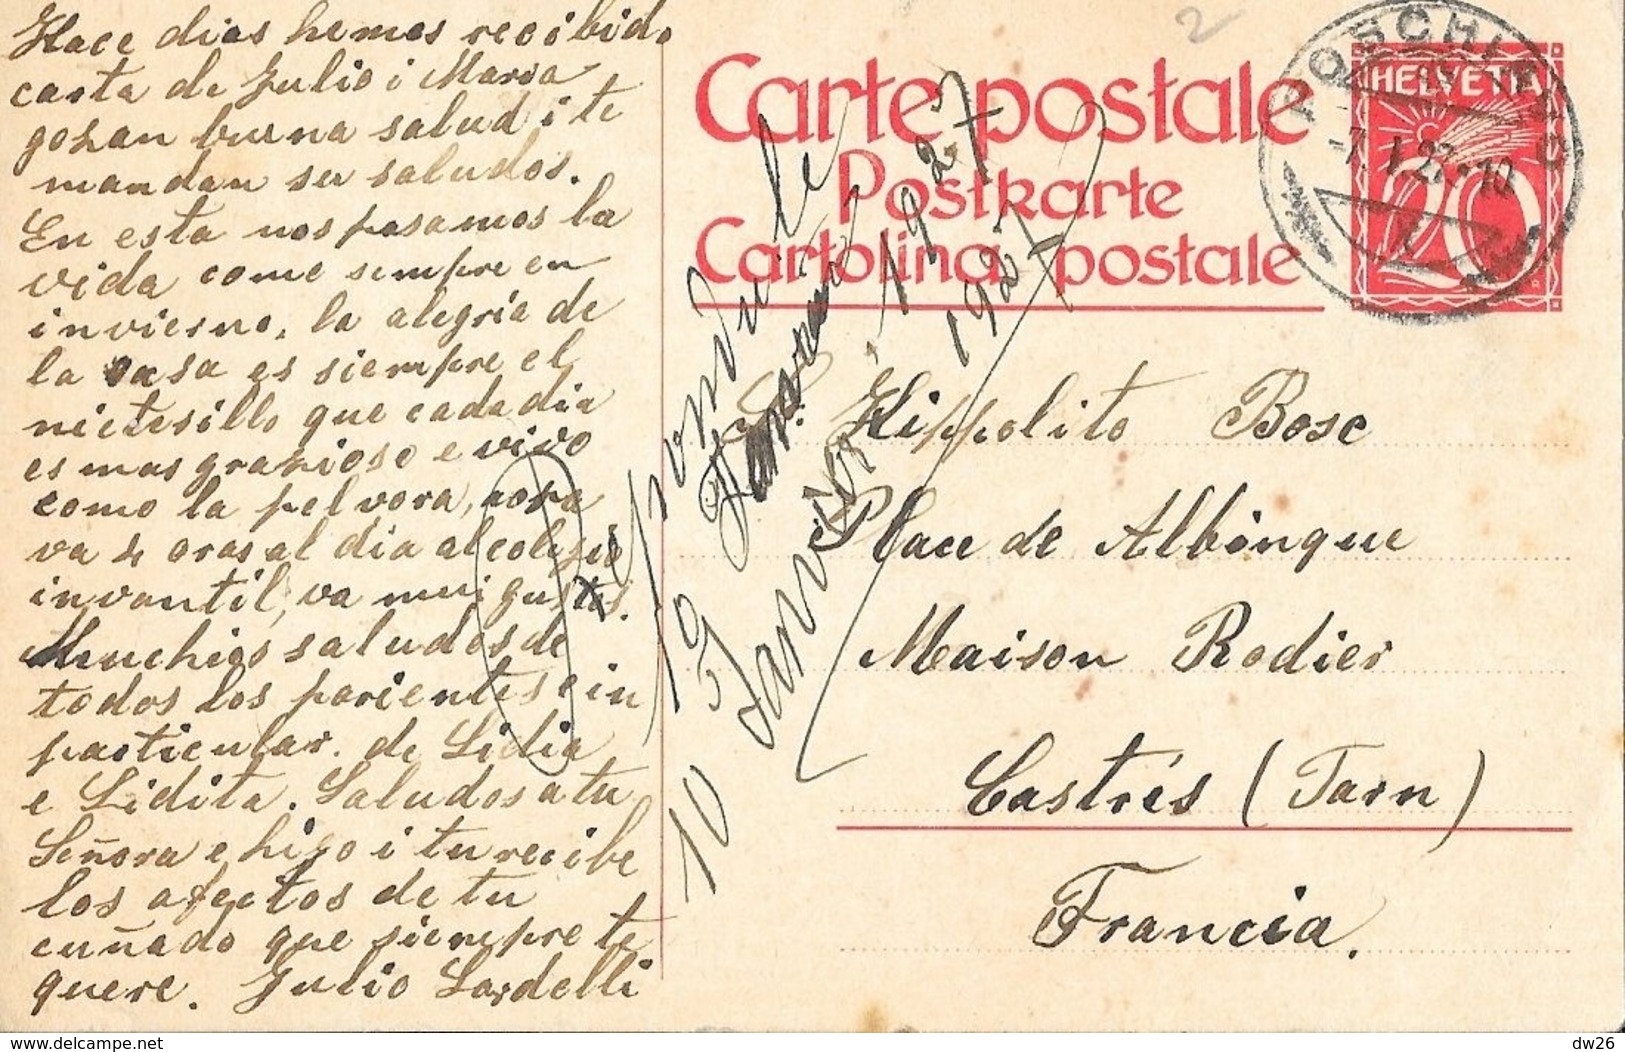 Hace dias hemos recibido
carta de Julio i Maria
gozan buena salud i te
mandan su saludos.
En esta nos pasamos la
vida come sempre en
invierno, la alegría de
la casa es siempre el
nietesillo que cada dia
es mas grazioso e vivo
como la pelvora, aora
va 4 oras al dia al colegio
invantil, va mui gustos.
Muchios saludos de
todos los parientes e in
particular. de Lidia
e Lidita. Saludos a tu
Señora e hijo i tu recibe
los afectos de tu
cuñado que siempre te
quere. Julio Lardelli
Carte postale
Postkarte
Cartolina postale
HELVETIA
20
POSCHIAVO
-7. I. 27.-10
Sr. Hippolito Bosc
Place de Albinque
Maison Rodier
Castrés (Tarn)
Francia.
Répondu le
19 Janvier 1927
10 Janvier 1927
2
delcampe.net
dw26